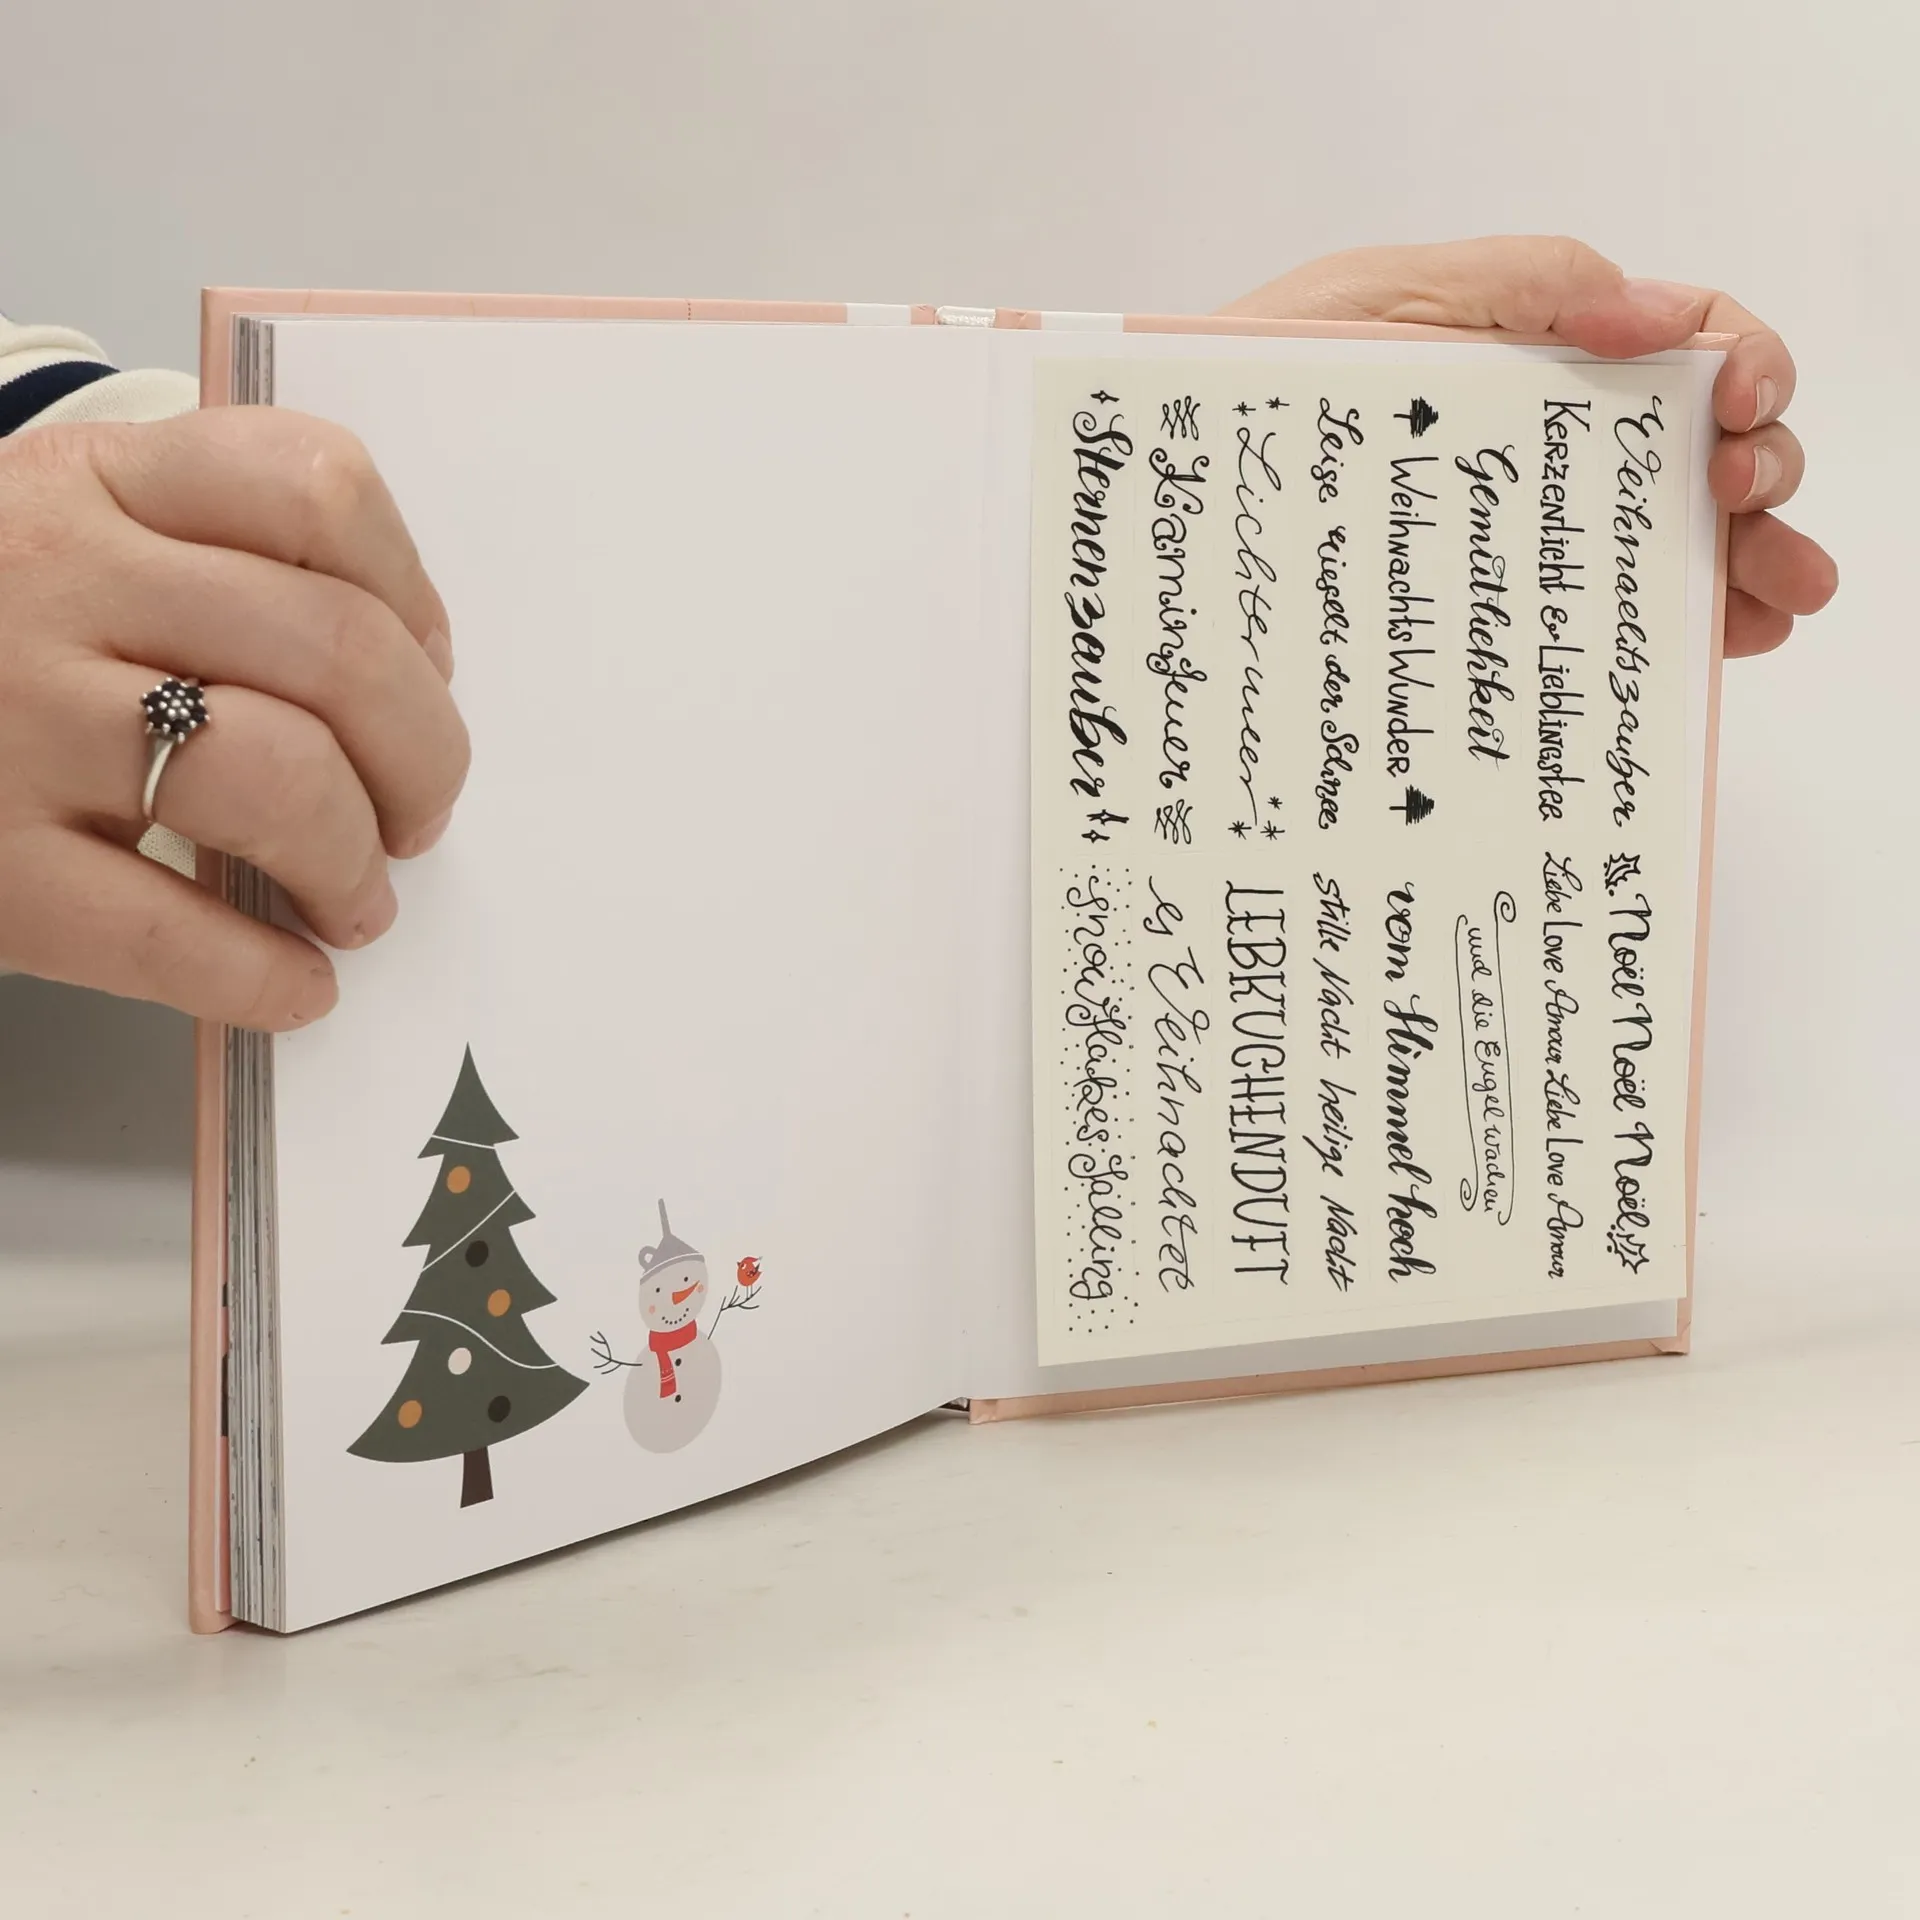 Weihnachtszauber
Noël Noël Noël
Kerzenlicht & Lieblingstee
Liebe Love Amour Liebe Love Amour
Gemütlichkeit
und die Engel wachen
WeihnachtsWunder
vom Himmel hoch
Leise rieselt der Schnee
Stille Nacht heilige Nacht
Lichtermeer
LEBKUCHENDUFT
Kaminfeuer
es Weihnachtet
Sternenzauber
snowflakes falling